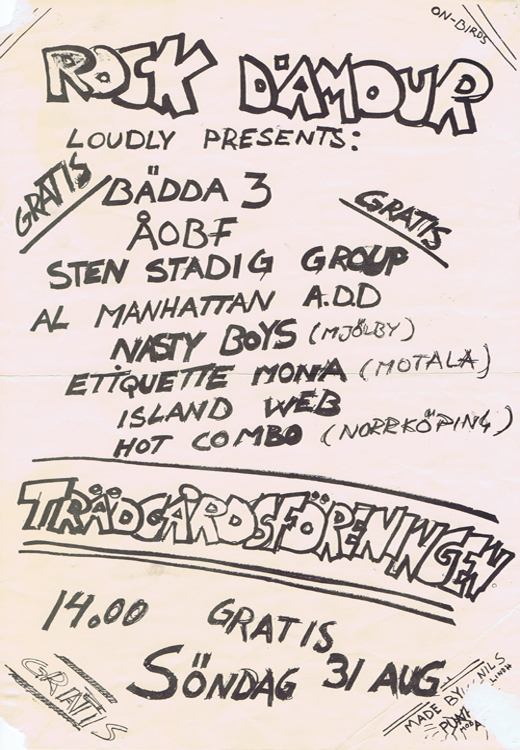 ON-BIRDS
ROCK D'AMOUR
LOUDLY PRESENTS:
GRATIS
BÄDDA 3
GRATIS
ÅOBF
STEN STADIG GROUP
AL MANHATTAN A.D.D
NASTY BOYS (MJÖLBY)
ETIQUETTE MONA (MOTALA)
ISLAND WEB
HOT COMBO (NORRKÖPING)
TRÄDGÅRDSFÖRENINGEN
14.00 GRATIS
SÖNDAG 31 AUG
GRATIS
MADE BY NILS
LINDH